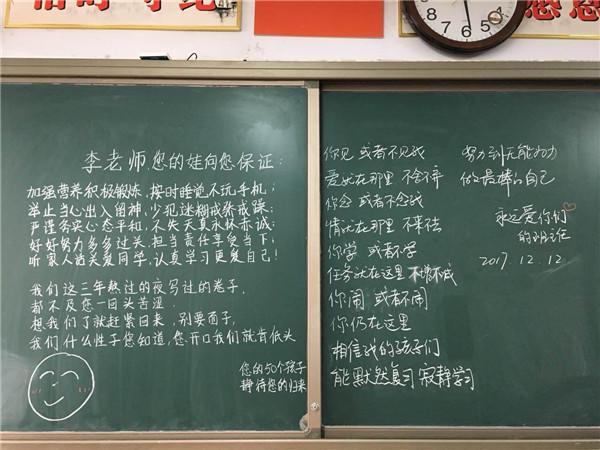 李老师您的娃向您保证：
加强营养积极锻炼，按时睡觉不玩手机；
举止当心出入留神，少犯迷糊戒骄戒躁；
严谨务实心态平和，不失天真永怀赤诚；
好好努力多多过关，担当责任享受当下；
听家人话关爱同学，认真学习更爱自己！
我们这三年熬过的夜写过的卷子，
都不及您一回头苦涩，
想我们了就赶紧回来，别要面子，
我们什么性子您知道，您开口我们就肯低头
您的50个孩子
静待您的归来
你见 或者不见我
爱就在那里 不舍不弃
你念 或者不念我
情就在那里 不来不去
你学 或者不学
任务就在这里 不增不减
你闹 或者不闹
你仍在这里
相信我的孩子们
能默然复习 寂静学习
努力到无能为力
做最棒的自己
永远爱你们
的班主任
2017.12.12